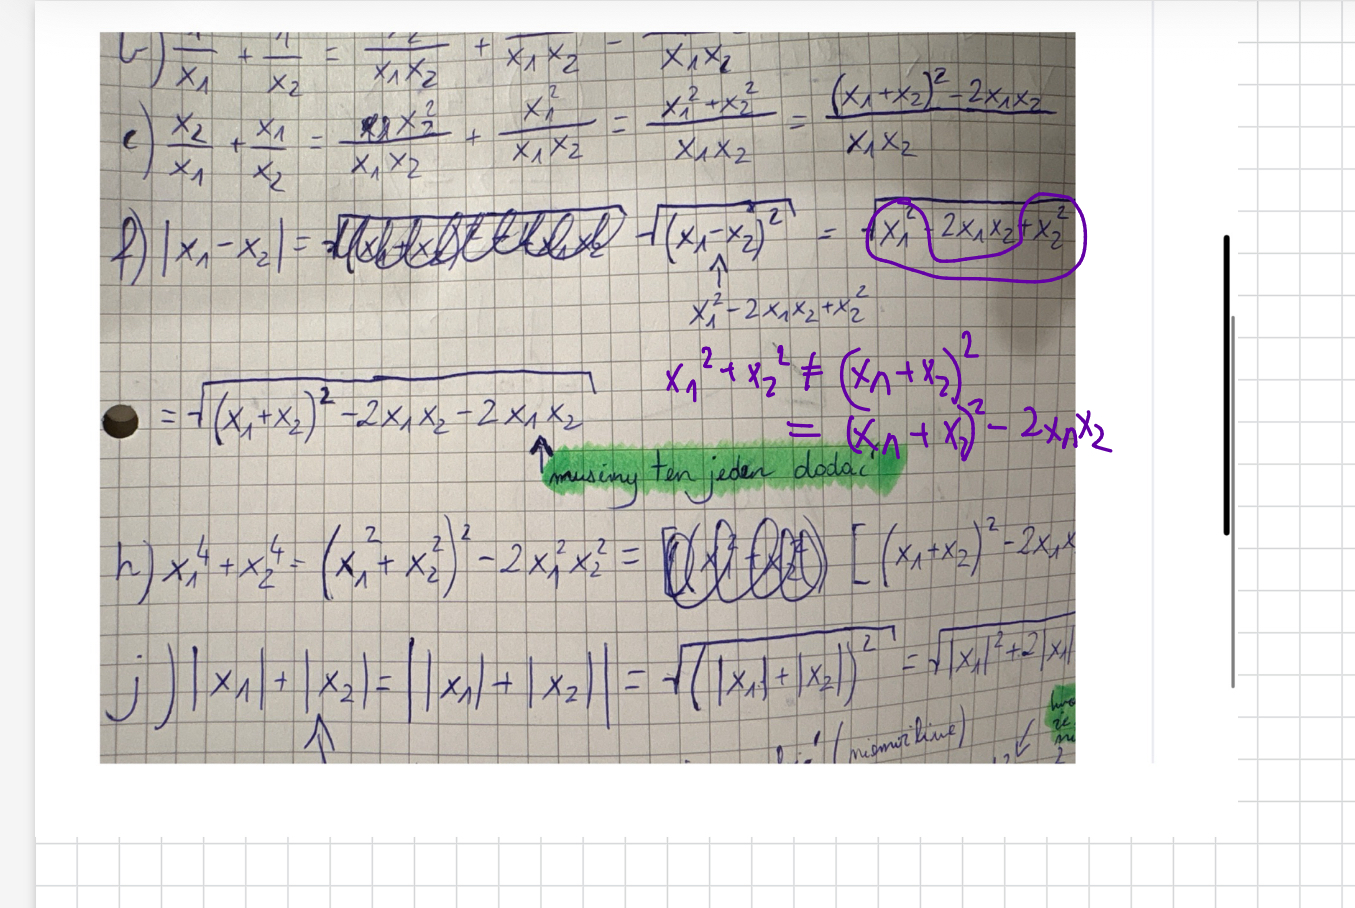 b) 1/x₁ + 1/x₂ = x₂/x₁x₂ + /x₁x₂ = /x₁x₂
e) x₂/x₁ + x₁/x₂ = x₂²/x₁x₂ + x₁²/x₁x₂ = (x₁²+x₂²)/x₁x₂ = ((x₁+x₂)²-2x₁x₂)/x₁x₂
f) |x₁-x₂| = √(x₁-x₂)² = √x₁²-2x₁x₂+x₂²
↑
x₁²-2x₁x₂+x₂²
x₁²+x₂² ≠ (x₁+x₂)²
= √(x₁+x₂)²-2x₁x₂-2x₁x₂
= (x₁+x₂)²-2x₁x₂
↑ musimy ten jeden dodać
h) x₁⁴+x₂⁴ = (x₁²+x₂²)²-2x₁²x₂² = [(x₁+x₂)²-2x₁x
j) |x₁|+|x₂| = ||x₁|+|x₂|| = √(|x₁|+|x₂|)² = √|x₁|²+2|x₁|
↑